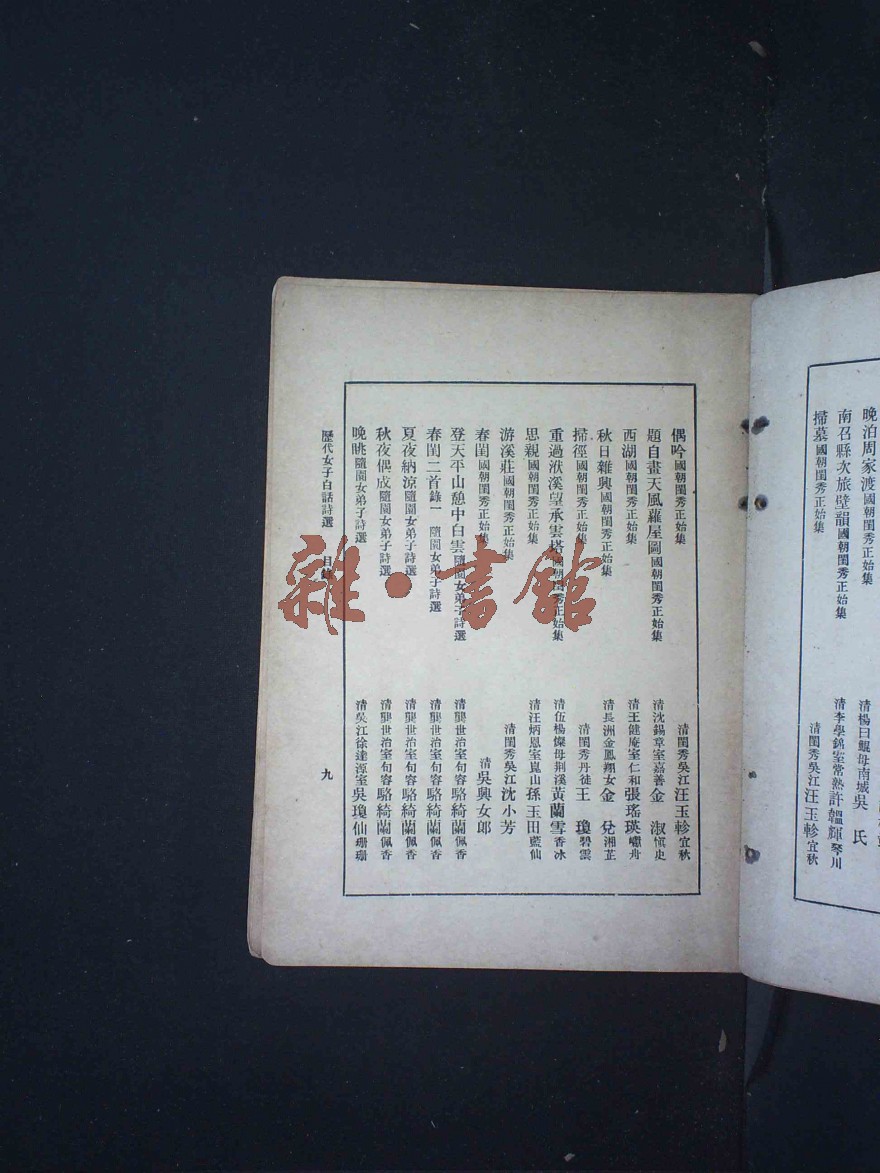 晚泊周家渡國朝閨秀正始集 清楊曰鯤母南城吳 氏
南召縣次旅壁韻國朝閨秀正始集 清李學錦室常熟許韞輝琴川
掃墓國朝閨秀正始集 清閨秀吳江汪玉軫宜秋
偶吟國朝閨秀正始集 清閨秀吳江汪玉軫宜秋
題自畫天風蘿屋圖國朝閨秀正始集 清沈錫章室嘉善金 淑愼史
西湖國朝閨秀正始集 清王健庵室仁和張瑤瑛嘯舟
秋日雜興國朝閨秀正始集 清長洲金鳳翔女金 兌湘芷
掃徑國朝閨秀正始集 清閨秀丹徒王 瓊碧雲
重過洑溪望承雲塔國朝閨秀正始集 清伍楊燦母荆溪黃蘭雪香冰
思親國朝閨秀正始集 清汪炳恩室崑山孫玉田藍仙
游溪莊國朝閨秀正始集 清閨秀吳江沈小芳
春閨國朝閨秀正始集 清吳興女郞
登天平山憩中白雲隨園女弟子詩選 清龔世治室句容駱綺蘭佩香
春閨二首錄一 隨園女弟子詩選 清龔世治室句容駱綺蘭佩香
夏夜納涼隨園女弟子詩選 清龔世治室句容駱綺蘭佩香
秋夜偶成隨園女弟子詩選 清龔世治室句容駱綺蘭佩香
晚眺隨園女弟子詩選 清吳江徐達源室吳瓊仙珊珊
歷代女子白話詩選 目錄 九
雜·書館